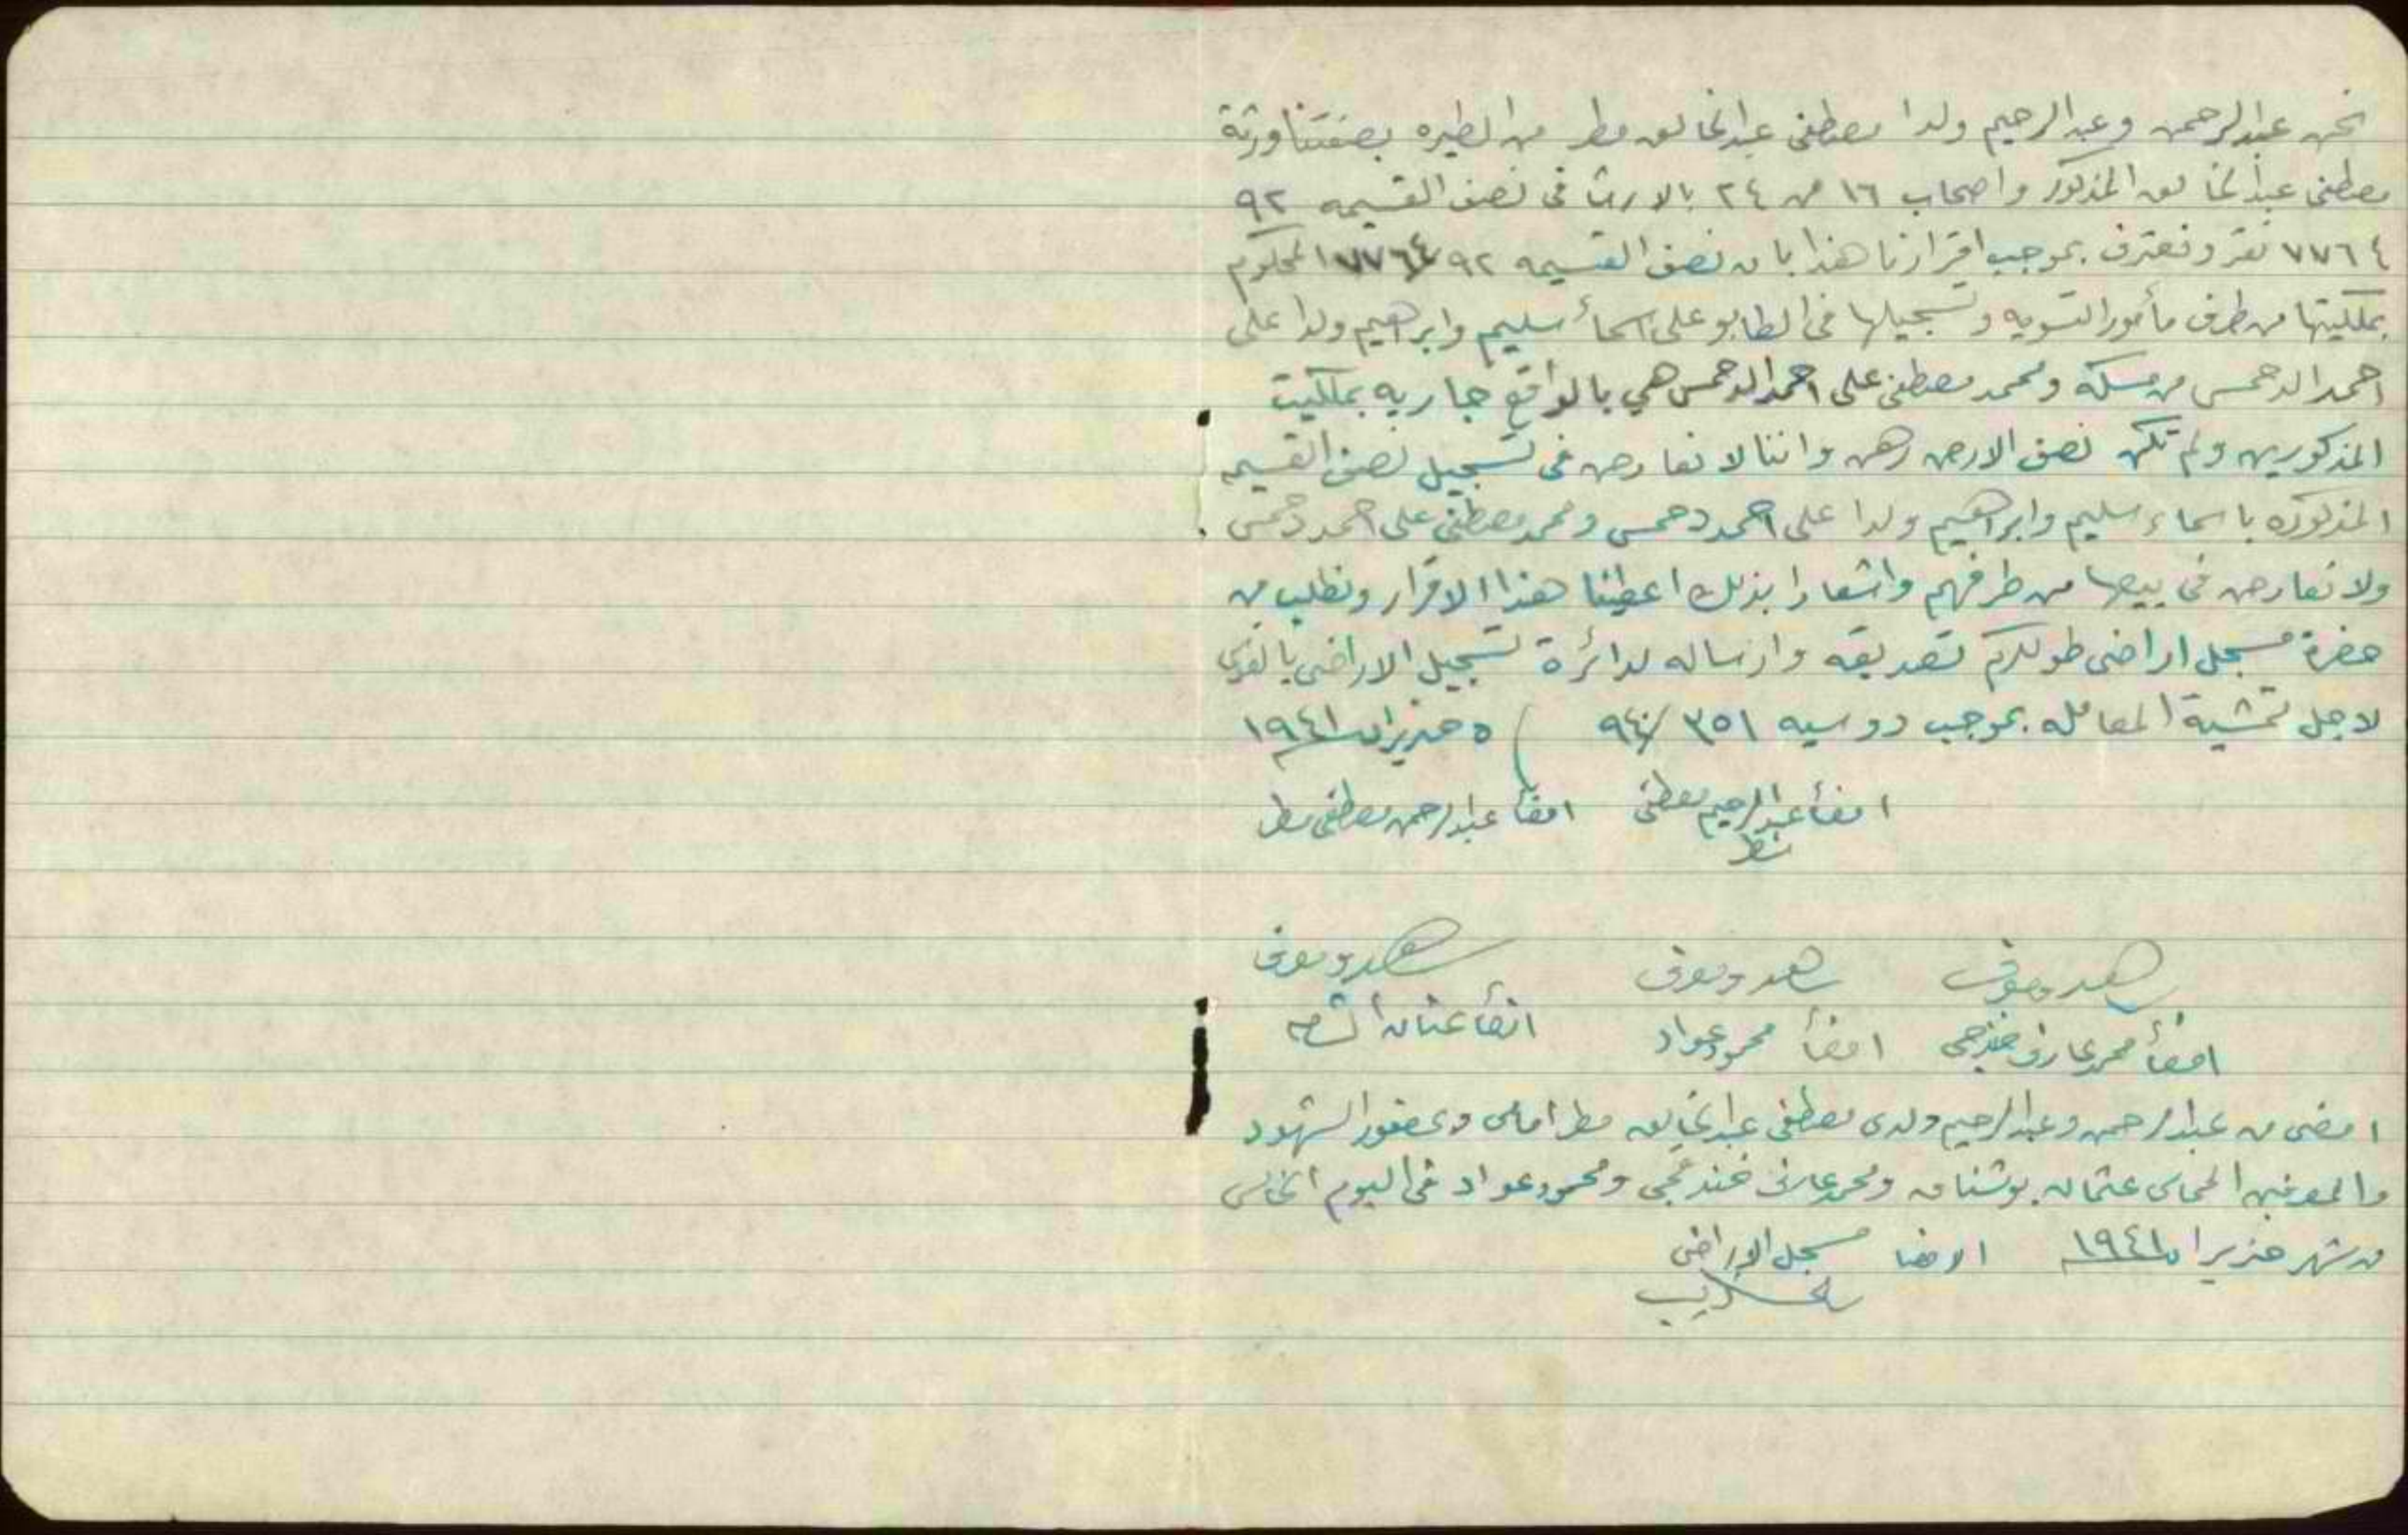 نحن عبدالرحمن وعبدالرحيم ولدا مصطفى عبدالخالق مطر من الطيره بصفتنا ورثة
مصطفى عبدالخالق المذكور واصحاب ١٦ من ٢٤ بالارث في نصف القسيمه ٩٢
٧٧٦٤ نقر ونعترف بموجب اقرارنا هذا بان نصف القسيمه ٩٢ / ٧٧٦٤ المحكوم
بملكيتها من طرف مأمور التسويه وتسجيلها في الطابو على اسمأ سليم وابراهيم ولدا على
احمد الدحمس من مسكه ومحمد مصطفى على احمد الدحمس هي بالواقع جاريه بملكيت
المذكورين ولم تكن نصف الارض رهن واننا لا نعارض في تسجيل نصف القسيمه
المذكوره باسماء سليم وابراهيم ولدا على احمد دحمس ومحمد مصطفى على احمد دحمس
ولا نعارض في بيعها من طرفهم واشعارا بذلك اعطينا هذا الاقرار ونطلب من
حضرة مسجل اراضى طولكرم تصديقه وارساله لدائرة تسجيل الاراضى
لاجل تمشية المعامله بموجب دوسيه ٣٥١ /٩٤٠ ٥ حزيران ١٩٤١
امضأ عبدالرحيم مصطفى امضأ عبدالرحمن مصطفى مطر
مطر
شاهد ومعرف شاهد ومعرف شاهد ومعرف
امضأ محمد عارف خندقجى امضأ محمود عواد امضأ عثمان
امضى من عبدالرحمن وعبدالرحيم ولدى مصطفى عبدالخالق مطر امامى وبحضور الشهود
والمعرفين المحامى عثمان بوشناق ومحمد عارف خندقجى ومحمود عواد في اليوم الخامس
من شهر حزيران ١٩٤١ الامضا مسجل الاراضى